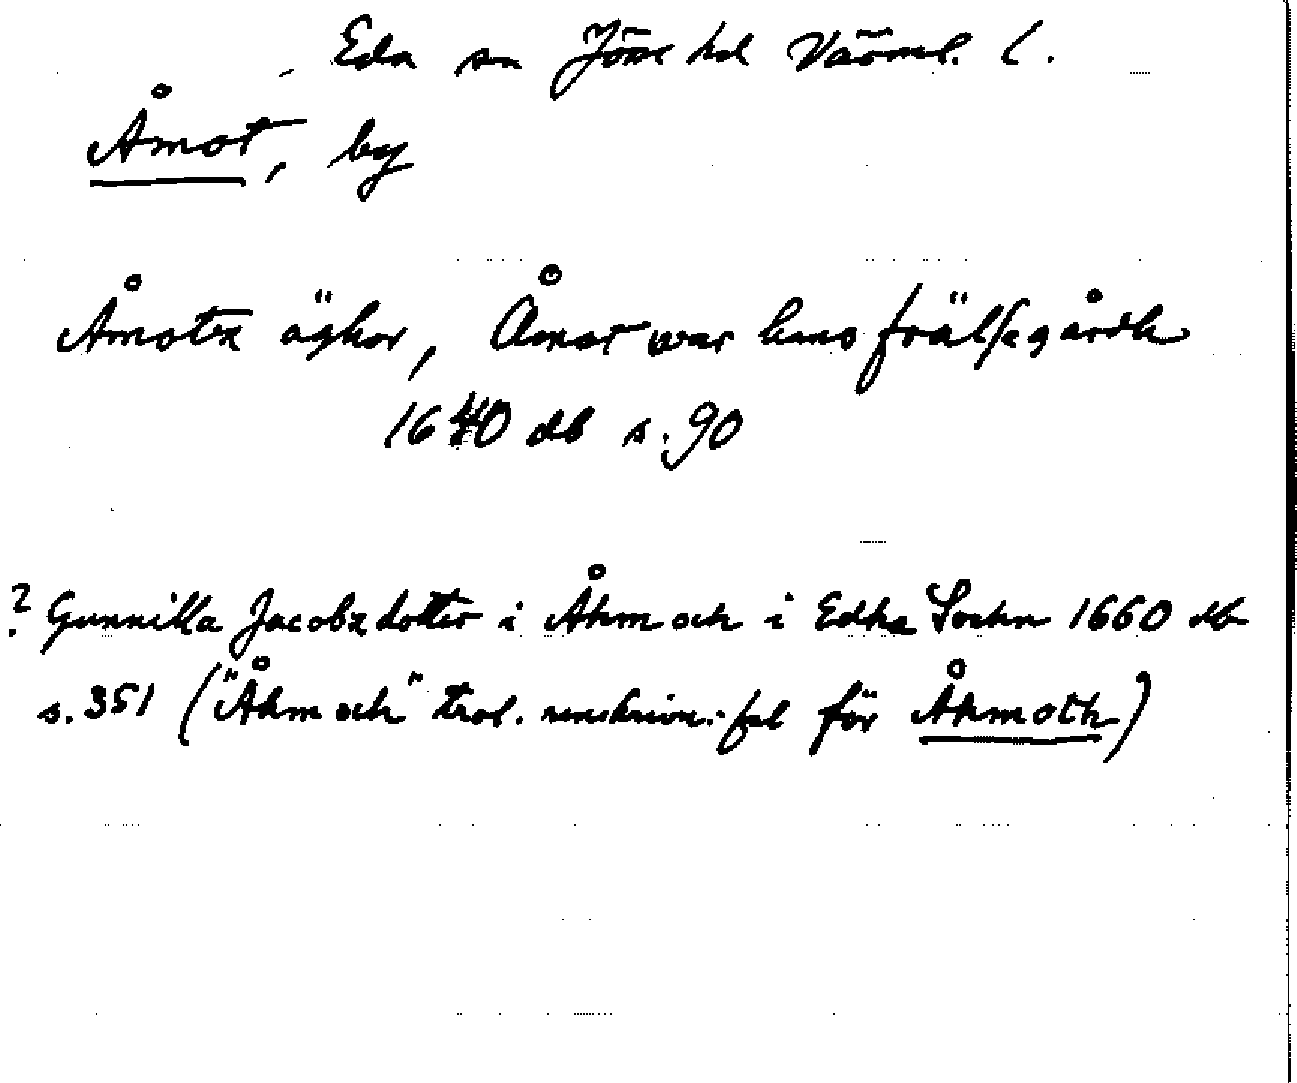 Eda sn Jösse hd Värml. l.
Åmot, by
Åmotz ägher, Åmot war hans frälssegårdh
1640 db s. 90
? Gunnilla Jacobzdotter i Åhmoch i Edha Sochn 1660 db
s. 351 ("Åhmoch" trol. renskrivn.-fel för Åhmoth)